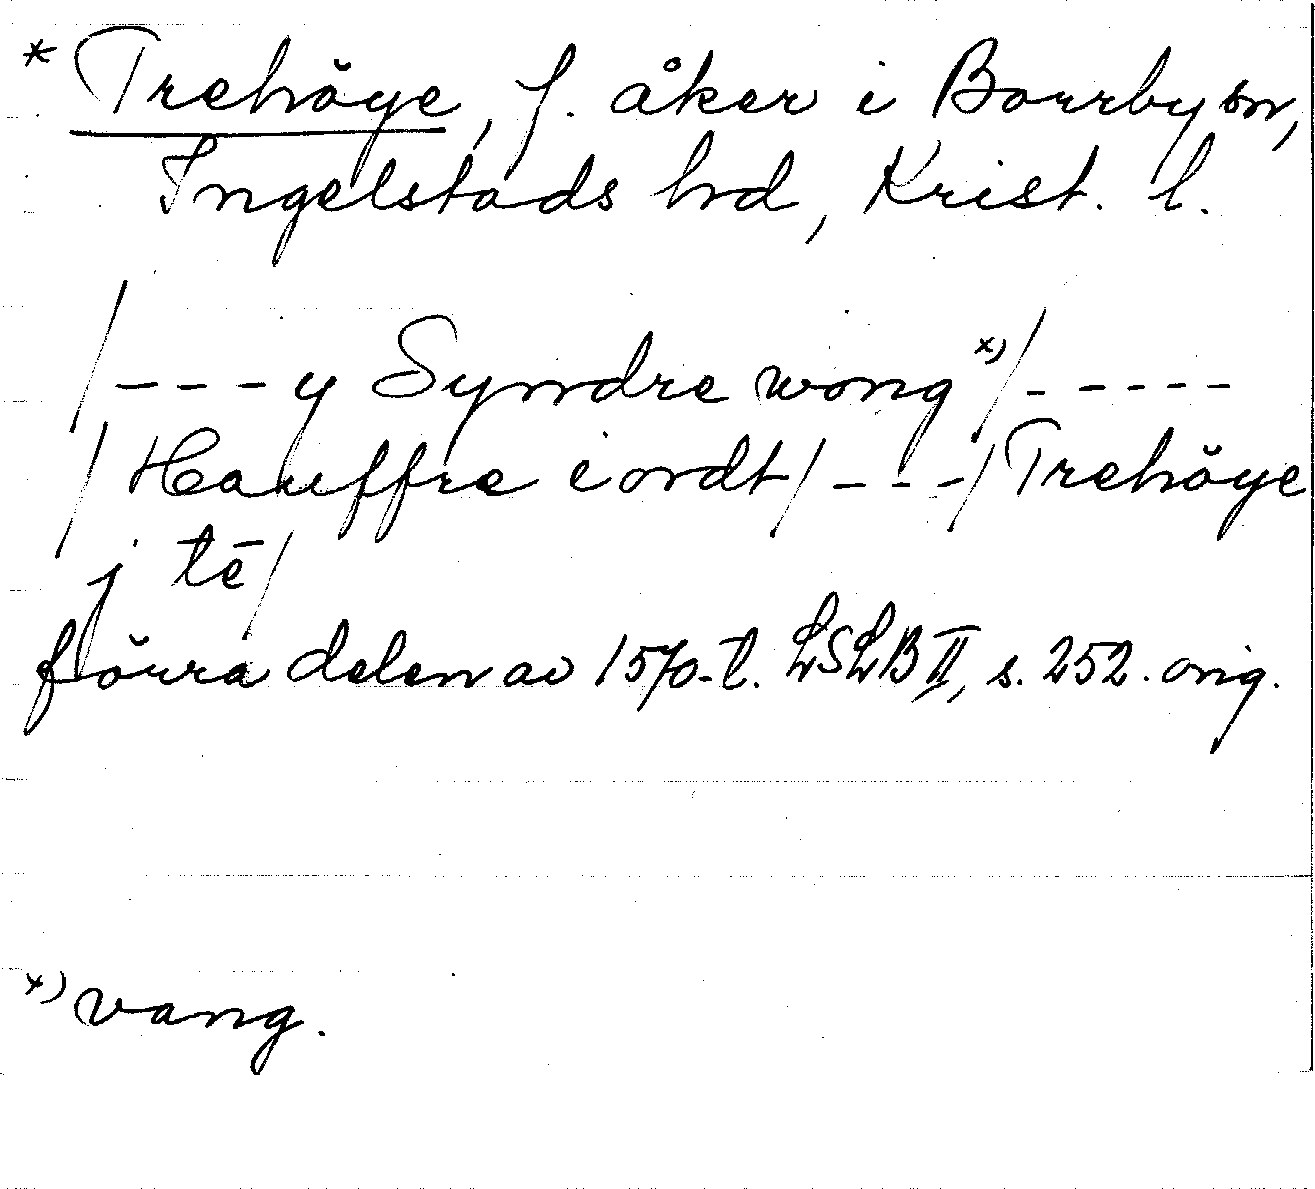 * Trehöye, f. åker i Borrby sn,
Ingelstads hd, Krist. l.
/---y Syndre wong x)/-----
/Hauffre iordt/---/Trehöye
j tē/
förra delen av 1570-t. LSLB II, s. 252. orig.
x) vang.